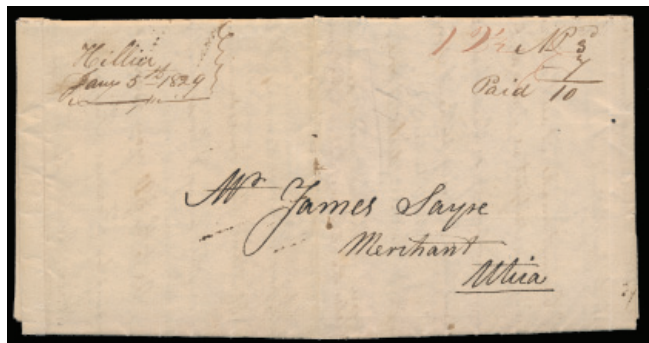 Hillier
Jany 5th 1829
12½ N. Pd 3
7
Paid 10
Mr James Sayre
Merchant
Utica